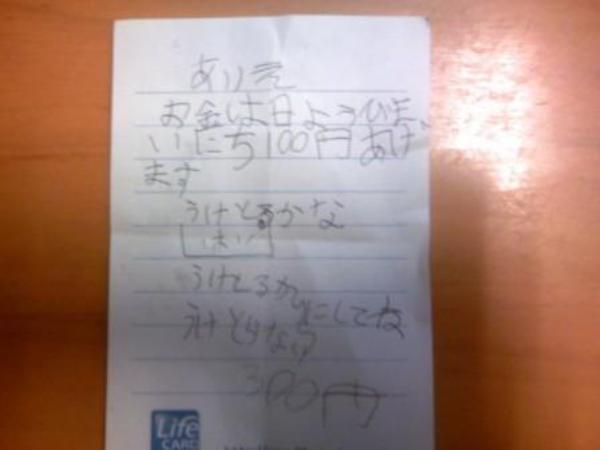 ありえ
お金は日ようびま
いにち100円あげ
ます
うけとるかな
はい
うけとるか
にしてね
うけとらない
300円
Life
CARD